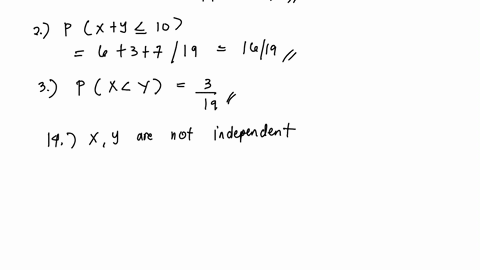 2.) P (X+Y ≤ 10)
= 6 +3+7 / 19 = 16/19 //
3.) P (X < Y) = 3/19 //
14.) X, y are not independent